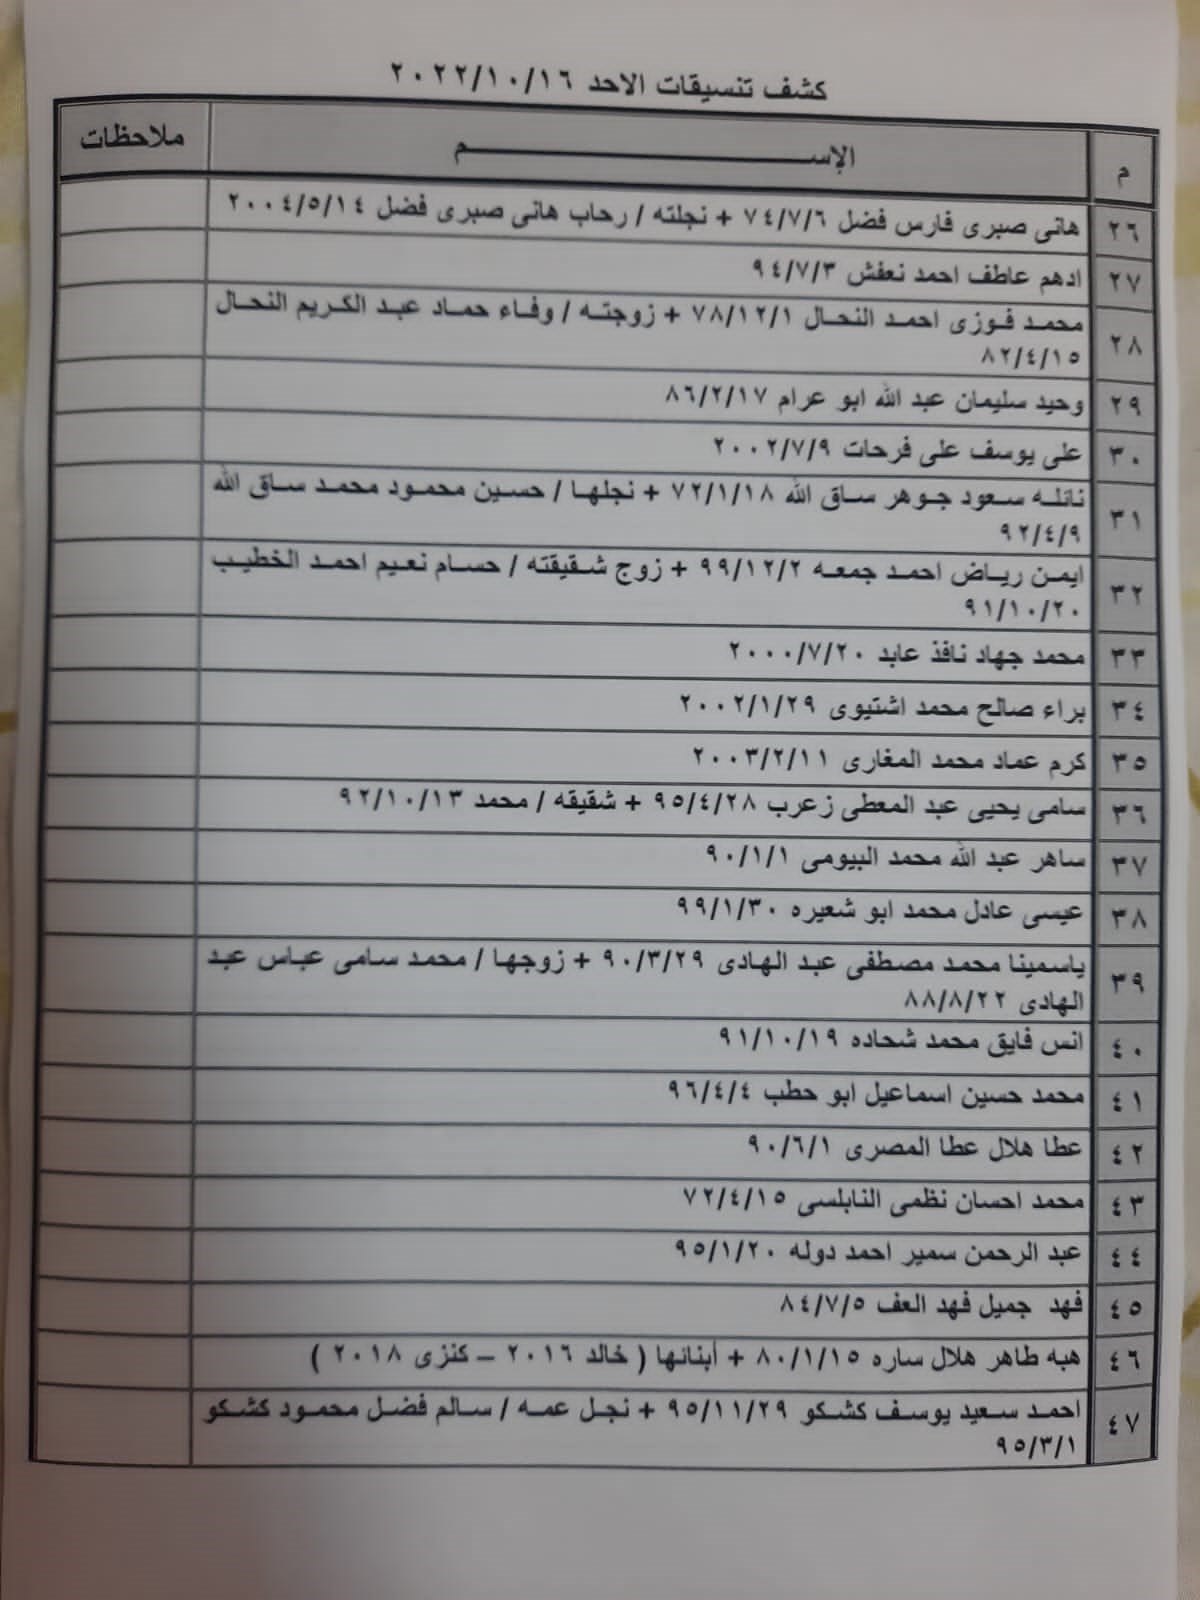 كشف تنسيقات الاحد ٢٠٢٢/١٠/١٦
م الإســـــــــم ملاحظات
٢٦ هانى صبرى فارس فضل ٧٤/٧/٦ + نجلته / رحاب هانى صبرى فضل ٢٠٠٤/٥/١٤
٢٧ ادهم عاطف احمد نعفش ٩٤/٧/٣
٢٨ محمد فوزى احمد النحال ٧٨/١٢/١ + زوجته / وفاء حماد عبد الكريم النحال
٨٢/٤/١٥
٢٩ وحيد سليمان عبد الله ابو عرام ٨٦/٢/١٧
٣٠ على يوسف على فرحات ٢٠٠٢/٧/٩
٣١ نائله سعود جوهر ساق الله ٧٢/١/١٨ + نجلها / حسين محمود محمد ساق الله
٩٢/٤/٩
٣٢ ايمن رياض احمد جمعه ٩٩/١٢/٢ + زوج شقيقته / حسام نعيم احمد الخطيب
٩١/١٠/٢٠
٣٣ محمد جهاد نافذ عابد ٢٠٠٠/٧/٢٠
٣٤ براء صالح محمد اشتيوى ٢٠٠٢/١/٢٩
٣٥ كرم عماد محمد المغارى ٢٠٠٣/٢/١١
٣٦ سامى يحيى عبد المعطى زعرب ٩٥/٤/٢٨ + شقيقه / محمد ٩٢/١٠/١٣
٣٧ ساهر عبد الله محمد البيومى ٩٠/١/١
٣٨ عيسى عادل محمد ابو شعيره ٩٩/١/٣٠
٣٩ ياسمينا محمد مصطفى عبد الهادى ٩٠/٣/٢٩ + زوجها / محمد سامى عباس عبد
الهادى ٨٨/٨/٢٢
٤٠ انس فايق محمد شحاده ٩١/١٠/١٩
٤١ محمد حسين اسماعيل ابو حطب ٩٦/٤/٤
٤٢ عطا هلال عطا المصرى ٩٠/٦/١
٤٣ محمد احسان نظمى النابلسى ٧٢/٤/١٥
٤٤ عبد الرحمن سمير احمد دوله ٩٥/١/٢٠
٤٥ فهد جميل فهد العف ٨٤/٧/٥
٤٦ هبه طاهر هلال ساره ٨٠/١/١٥ + أبنائها ( خالد ٢٠١٦ – كنزى ٢٠١٨ )
٤٧ احمد سعيد يوسف كشكو ٩٥/١١/٢٩ + نجل عمه / سالم فضل محمود كشكو
٩٥/٣/١